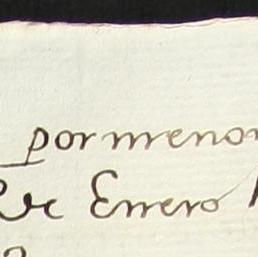 por menor
de Enero